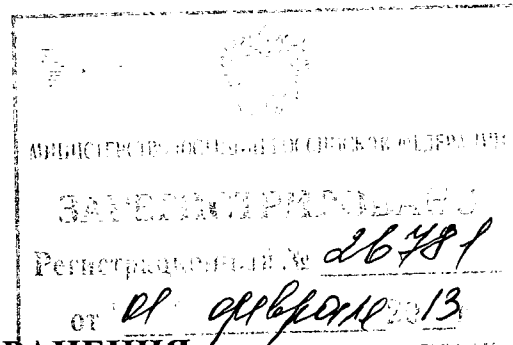 МИНИСТЕРСТВО ЮСТИЦИИ РОССИЙСКОЙ ФЕДЕРАЦИИ
ЗАРЕГИСТРИРОВАНО
Регистрационный № 26781
от "01" февраля 2013